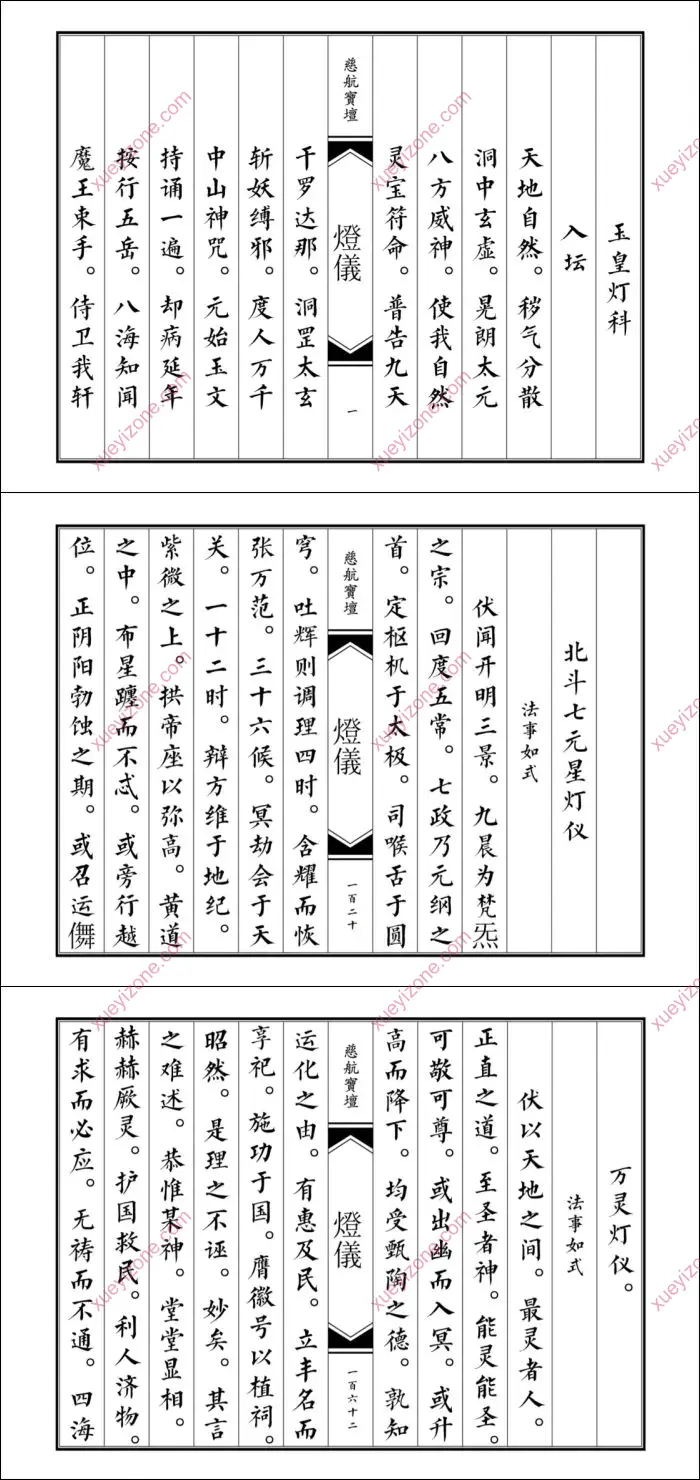 玉皇灯科
入坛
天地自然。秽气分散
洞中玄虚。晃朗太元
八方威神。使我自然
灵宝符命。普告九天
慈航寶壇
燈儀
一
干罗达那。洞罡太玄
斩妖缚邪。度人万千
中山神咒。元始玉文
持诵一遍。却病延年
按行五岳。八海知闻
魔王束手。侍卫我轩
北斗七元星灯仪
法事如式
伏闻开明三景。九晨为梵炁
之宗。回度五常。七政乃元纲之
首。定枢机于太极。司喉舌于圆
慈航寶壇
燈儀
一百二十
穹。吐辉则调理四时。含耀而恢
张万范。三十六候。冥劫会于天
关。一十二时。辩方维于地纪。
紫微之上。拱帝座以弥高。黄道
之中。布星躔而不忒。或旁行越
位。正阴阳勃蚀之期。或召运儛
万灵灯仪。
法事如式
伏以天地之间。最灵者人。
正直之道。至圣者神。能灵能圣。
可敬可尊。或出幽而入冥。或升
高而降下。均受甄陶之德。孰知
慈航寶壇
燈儀
一百六十二
运化之由。有惠及民。立丰名而
享祀。施功于国。膺徽号以植祠。
昭然。是理之不诬。妙矣。其言
之难述。恭惟某神。堂堂显相。
赫赫厥灵。护国救民。利人济物。
有求而必应。无祷而不通。四海
xueyizone.com